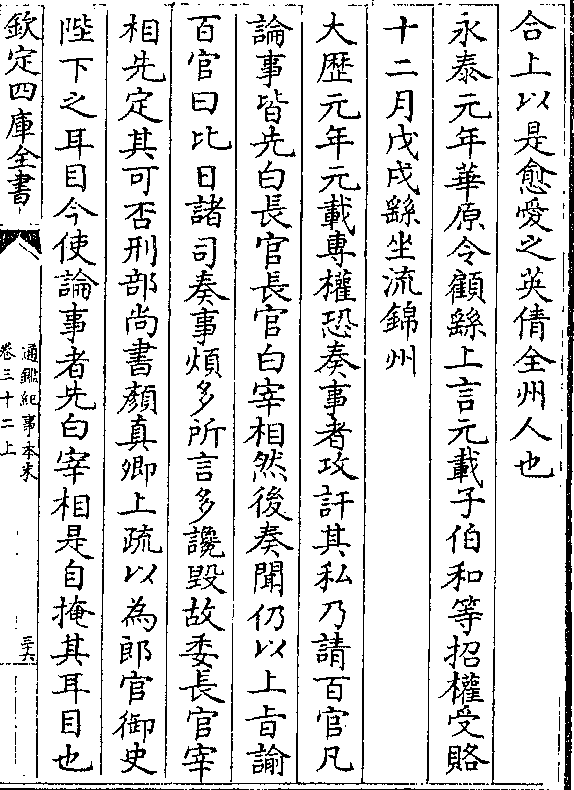 合上以是愈愛之英倩全州人也
永泰元年華原令顧繇上言元載子伯和等招權受賂
十二月戊戌繇坐流錦州
大歴元年元載專權恐奏事者攻訐其私乃請百官凡
論事皆先白長官長官白宰相然後奏聞仍以上旨諭
百官曰比日諸司奏事煩多所言多讒毀故委長官宰
相先定其可否刑部尚書顏真卿上疏以為郎官御史
陛下之耳目今使論事者先白宰相是自掩其耳目也
欽定四庫全書
通鑑紀事本末
卷三十二上
三六